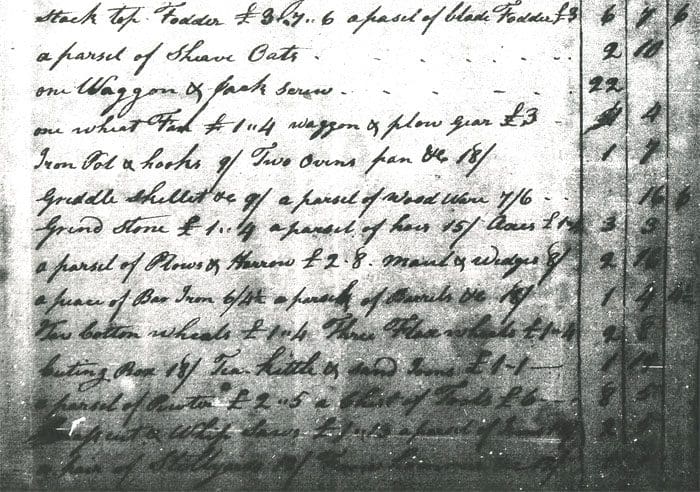 Stack top Fodder £3..7..6 a parsel of blade Fodder £3 6 7 6
a parsel of Sheave Oats 2 10
one Waggon & Jack Screw 22
one wheat Fan £1..4 waggon & plow gear £3 4 4
Iron Pot & hooks 9/ Two Ovins pan &c 18/ 1 7
Griddle Skillet &c 9/ a parsel of wood Ware 7/6 16 6
Grind Stone £1..4 a parsel of hoes 15/ Axes £1.4 3 3
a parsel of Plows & Harrow £2.8. Maul & Wedges 8/ 2 16
a peace of Bar Iron 6/4½ a parsel of Barrils &c 18/ 1 4 4½
Two Cotton wheals £1..4 Three Flax wheals £1..4 2 8
Cuting Box 18/ Tea Kettle & Irons £1-1 1
a parsel of £2..5 a Chest of Tools £6 8 5
& Whip Saws a parsel of 2 5
a pair of